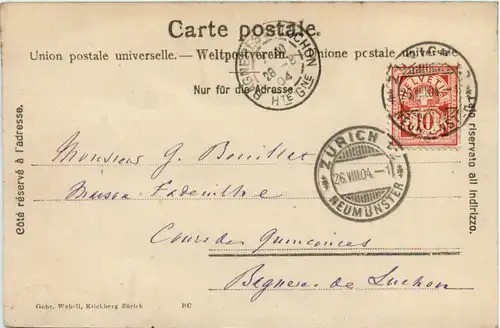 Carte postale.
Union postale universelle. — Weltpostverein. — Unione postale universale.
Nur für die Adresse
Côté réservé à l'adresse.
Lato riservato all'indirizzo.
BAGNERES DE LUCHON
28 -8
04
HTE GNE
HELVETIA
10
ZÜRICH
26.VIII.04.-1
NEUMÜNSTER
Monsieur G.
Maison
Cours des Quinconces
Bagnères de Luchon
Gebr. Wehrli, Kilchberg Zürich BC